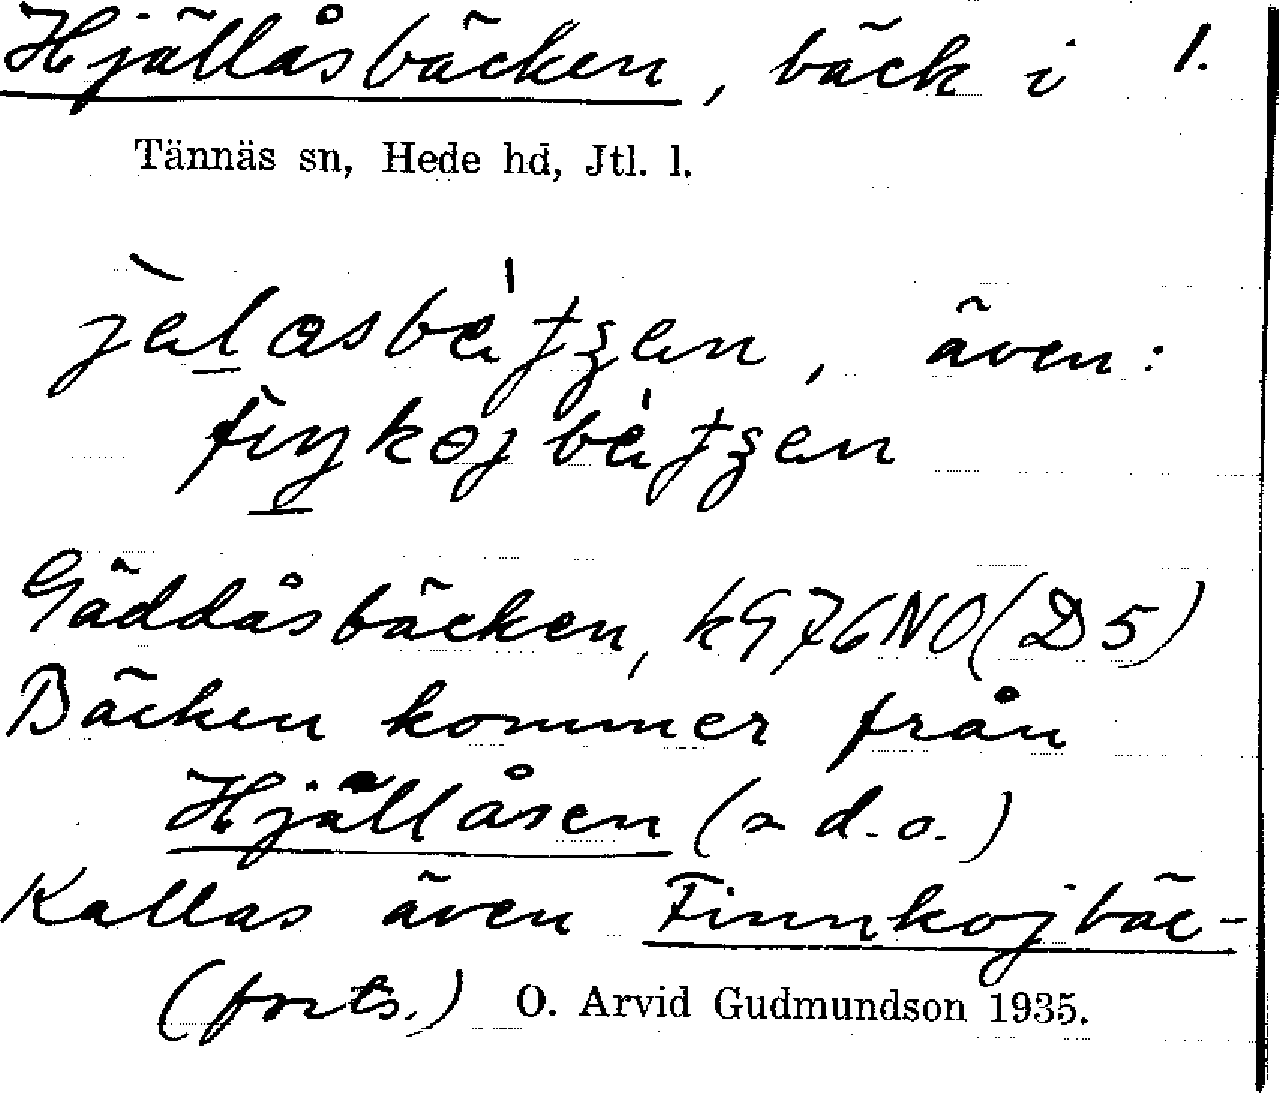 Hjällåsbäcken, bäck i 1.
Tännäs sn, Hede hd, Jtl. l.
även:
Gäddåsbäcken, kG76NO(D5)
Bäcken kommer från
Hjällåsen (a d.o.)
Kallas även Finnkojbäc-
(forts.) O. Arvid Gudmundson 1935.